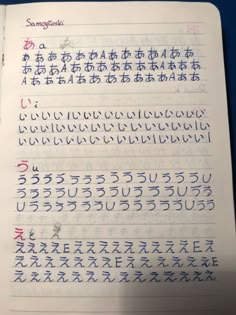 Samogłoski
あ a あ
あああああああAあああああAああ
あああああAああああああAあああ
Aああああああああああああああ
い i
いいいいいいいいいIいいいいIいい
いいいいいいいいいいいいいいいい
いいいいいいいいいいいいいいいI
う u
うううううううううううううU
UうううううううUうううUうう
UうううううううううううUうう
え e え
ええええEえええええええEえ
ええええええええEえええええE
ええええええええええええええ